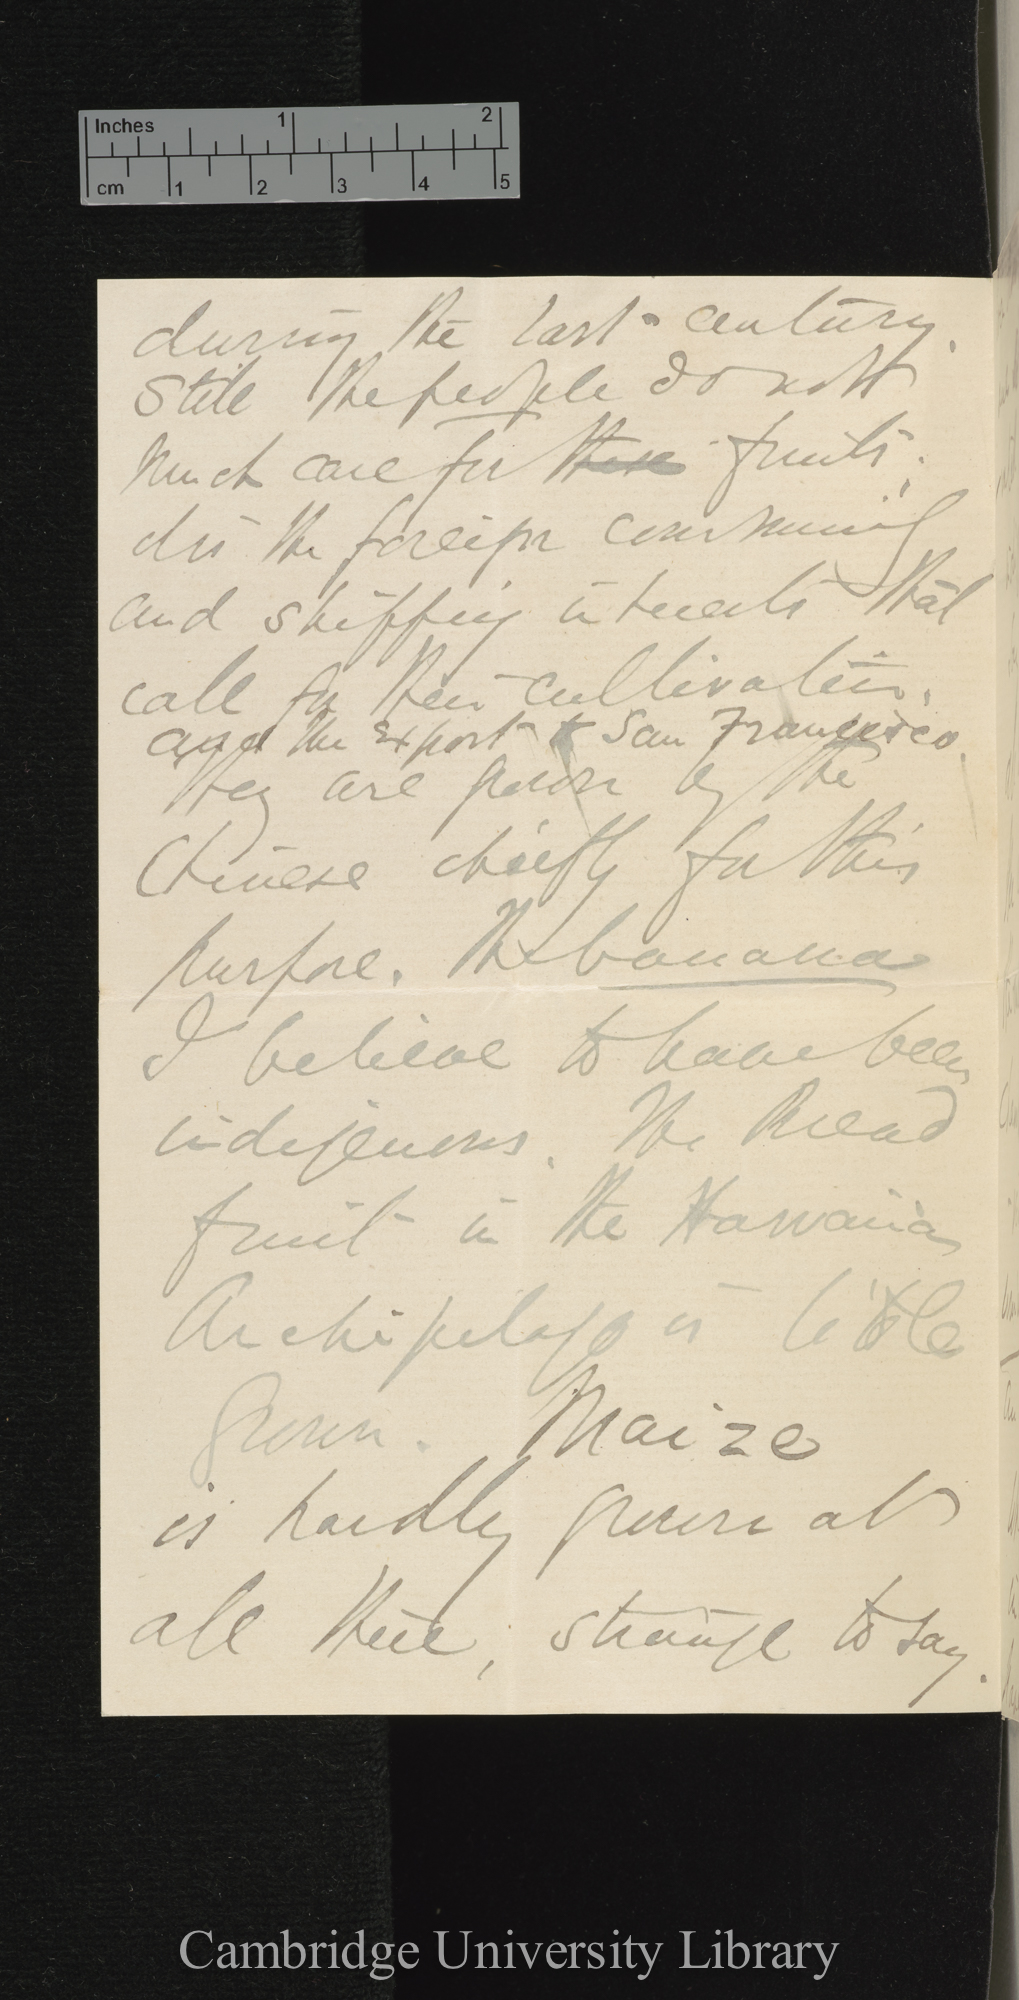 Inches 1 2
cm 1 2 3 4 5
during the last century.
Still the people do not
much care for these fruits.
It is the foreign community
and shipping interests that
call for their cultivation,
and the export to San Francisco.
They are grown by the
Chinese chiefly for this
purpose. The banana
I believe to have been
indigenous. The bread
fruit in the Hawaiian
Archipelago is little
grown. Maize
is hardly grown at
all there, strange to say.
Cambridge University Library